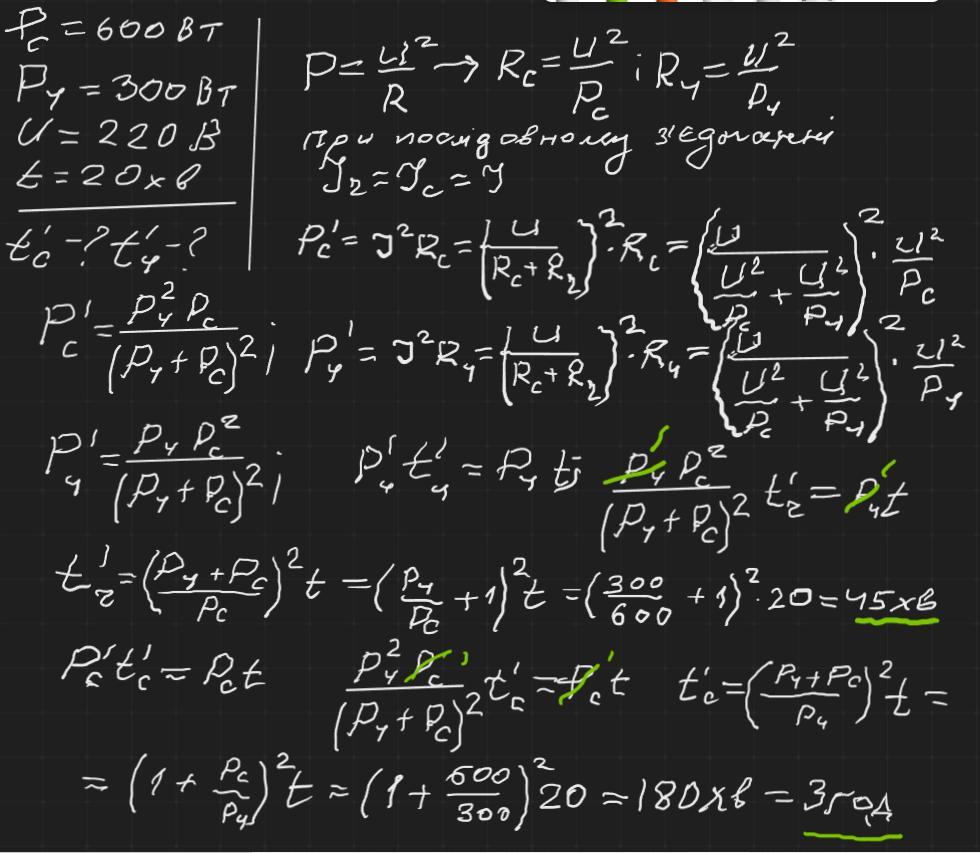 P_c = 600 Вт
P_ч = 300 Вт
U = 220 В
t = 20 хв
t'_c - ? t'_ч - ?
P = U²/R → R_c = U²/P_c ; R_ч = U²/P_ч
При послідовному з'єднанні
I_2 = I_c = I
P_c' = I² R_c = (U/(R_c + R_2))² · R_c = (U/(U²/P_c + U²/P_ч))² · U²/P_c
P_c' = P_ч² P_c/(P_ч + P_c)² ; P_ч' = I² R_ч = (U/(R_c + R_2))² · R_ч = (U/(U²/P_c + U²/P_ч))² · U²/P_ч
P_ч' = P_ч P_c²/(P_ч + P_c)² ; P_ч' t_ч' = P_ч t; P_ч P_c²/(P_ч + P_c)² t_2' = P_ч t
t_2' = ((P_ч + P_c)/P_c)² t = (P_ч/P_c + 1)² t = (300/600 + 1)² · 20 = 45 хв
P_c' t_c' = P_c t P_ч² P_c/(P_ч + P_c)² t_c' = P_c t t_c' = ((P_ч + P_c)/P_ч)² t =
= (1 + P_c/P_ч)² t = (1 + 600/300)² 20 = 180 хв = 3 год